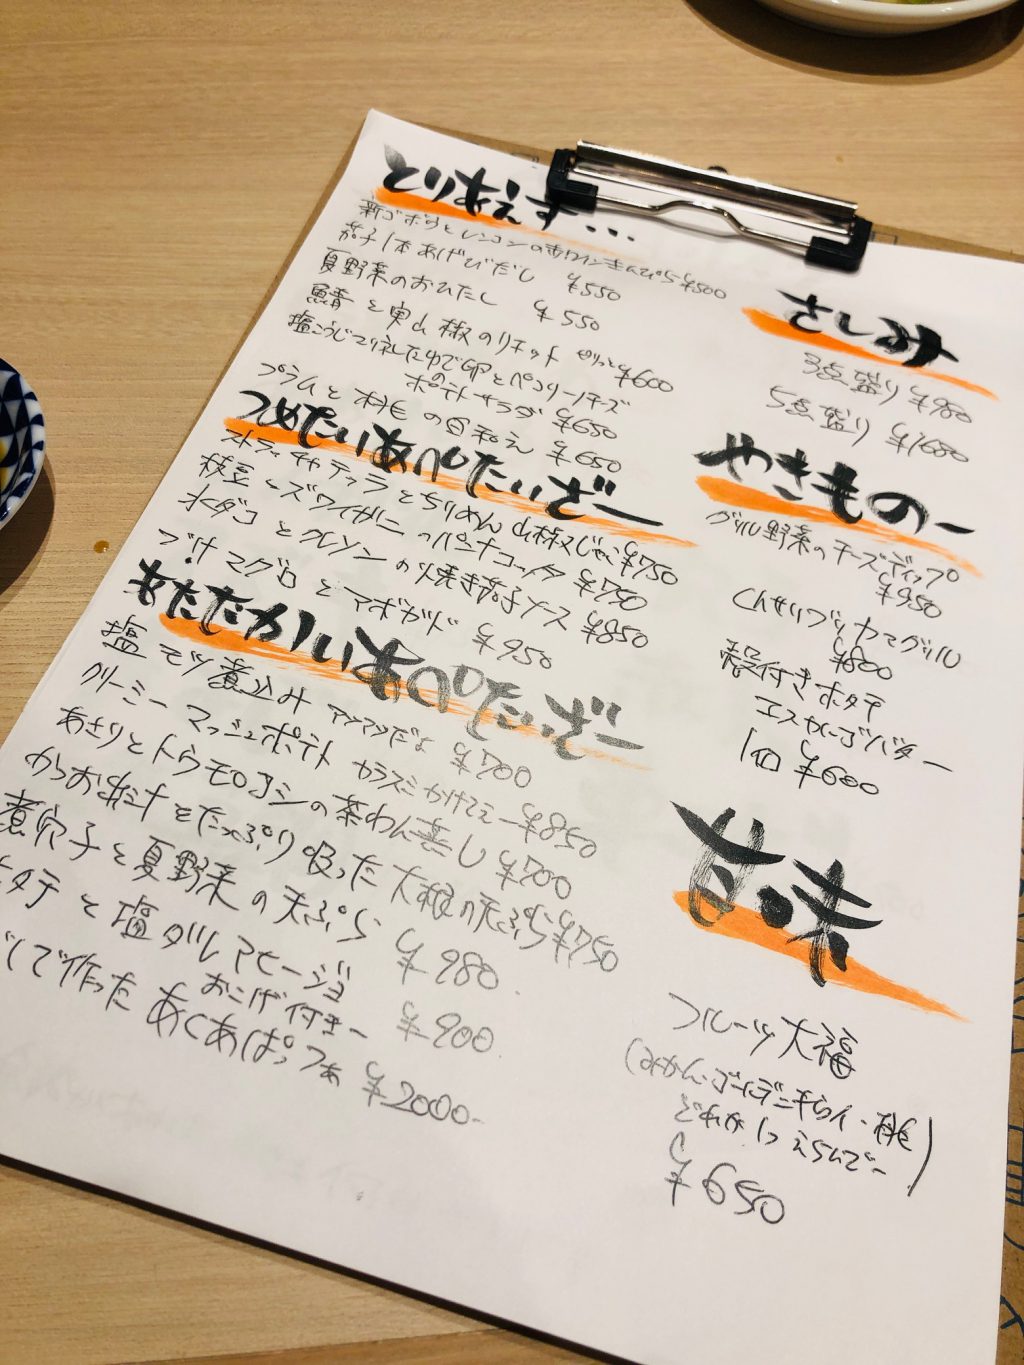 とりあえず...
新ゴボウとレンコンの赤ワインきんぴら ¥500
茄子1本あげびだし ¥550
夏野菜のおひたし ¥550
鯖と実山椒のリエット ¥600
塩こうじマリネしたゆで卵とペコリーノチーズ
のポテトサラダ ¥650
プラムと桃の白和え ¥650
つめたいあぺたいざー
ストラッチャテッラとちりめん山椒 ¥750
枝豆とズワイガニのパンナコッタ ¥750
水ダコとクレソンの焼き茄子ソース ¥850
づけマグロとアボガド ¥950
あたたかいあぺたいざー
塩モツ煮込み アツアツだよ ¥700
クリーミーマッシュポテト カラスミかけてぇー ¥850
あさりとトウモロコシの茶わん蒸し ¥700
からお出汁をたっぷり吸った大根の天ぷら ¥750
煮穴子と夏野菜の天ぷら ¥980
タテと塩ダレアヒージョ
おこげ付きー ¥900
しで作ったあくあぱっつぁ ¥2000-
さしみ
3点盛り ¥980
5点盛り ¥1680
やきものー
グリル野菜のチーズディップ
¥950
くんせいブリカマグリル
¥800
殻付きホタテ
エスカルゴバター
1コ ¥600
甘味
フルーツ大福
(みかん・ゴールデンキウイ・桃
どれか1つえらんでー)
¥650